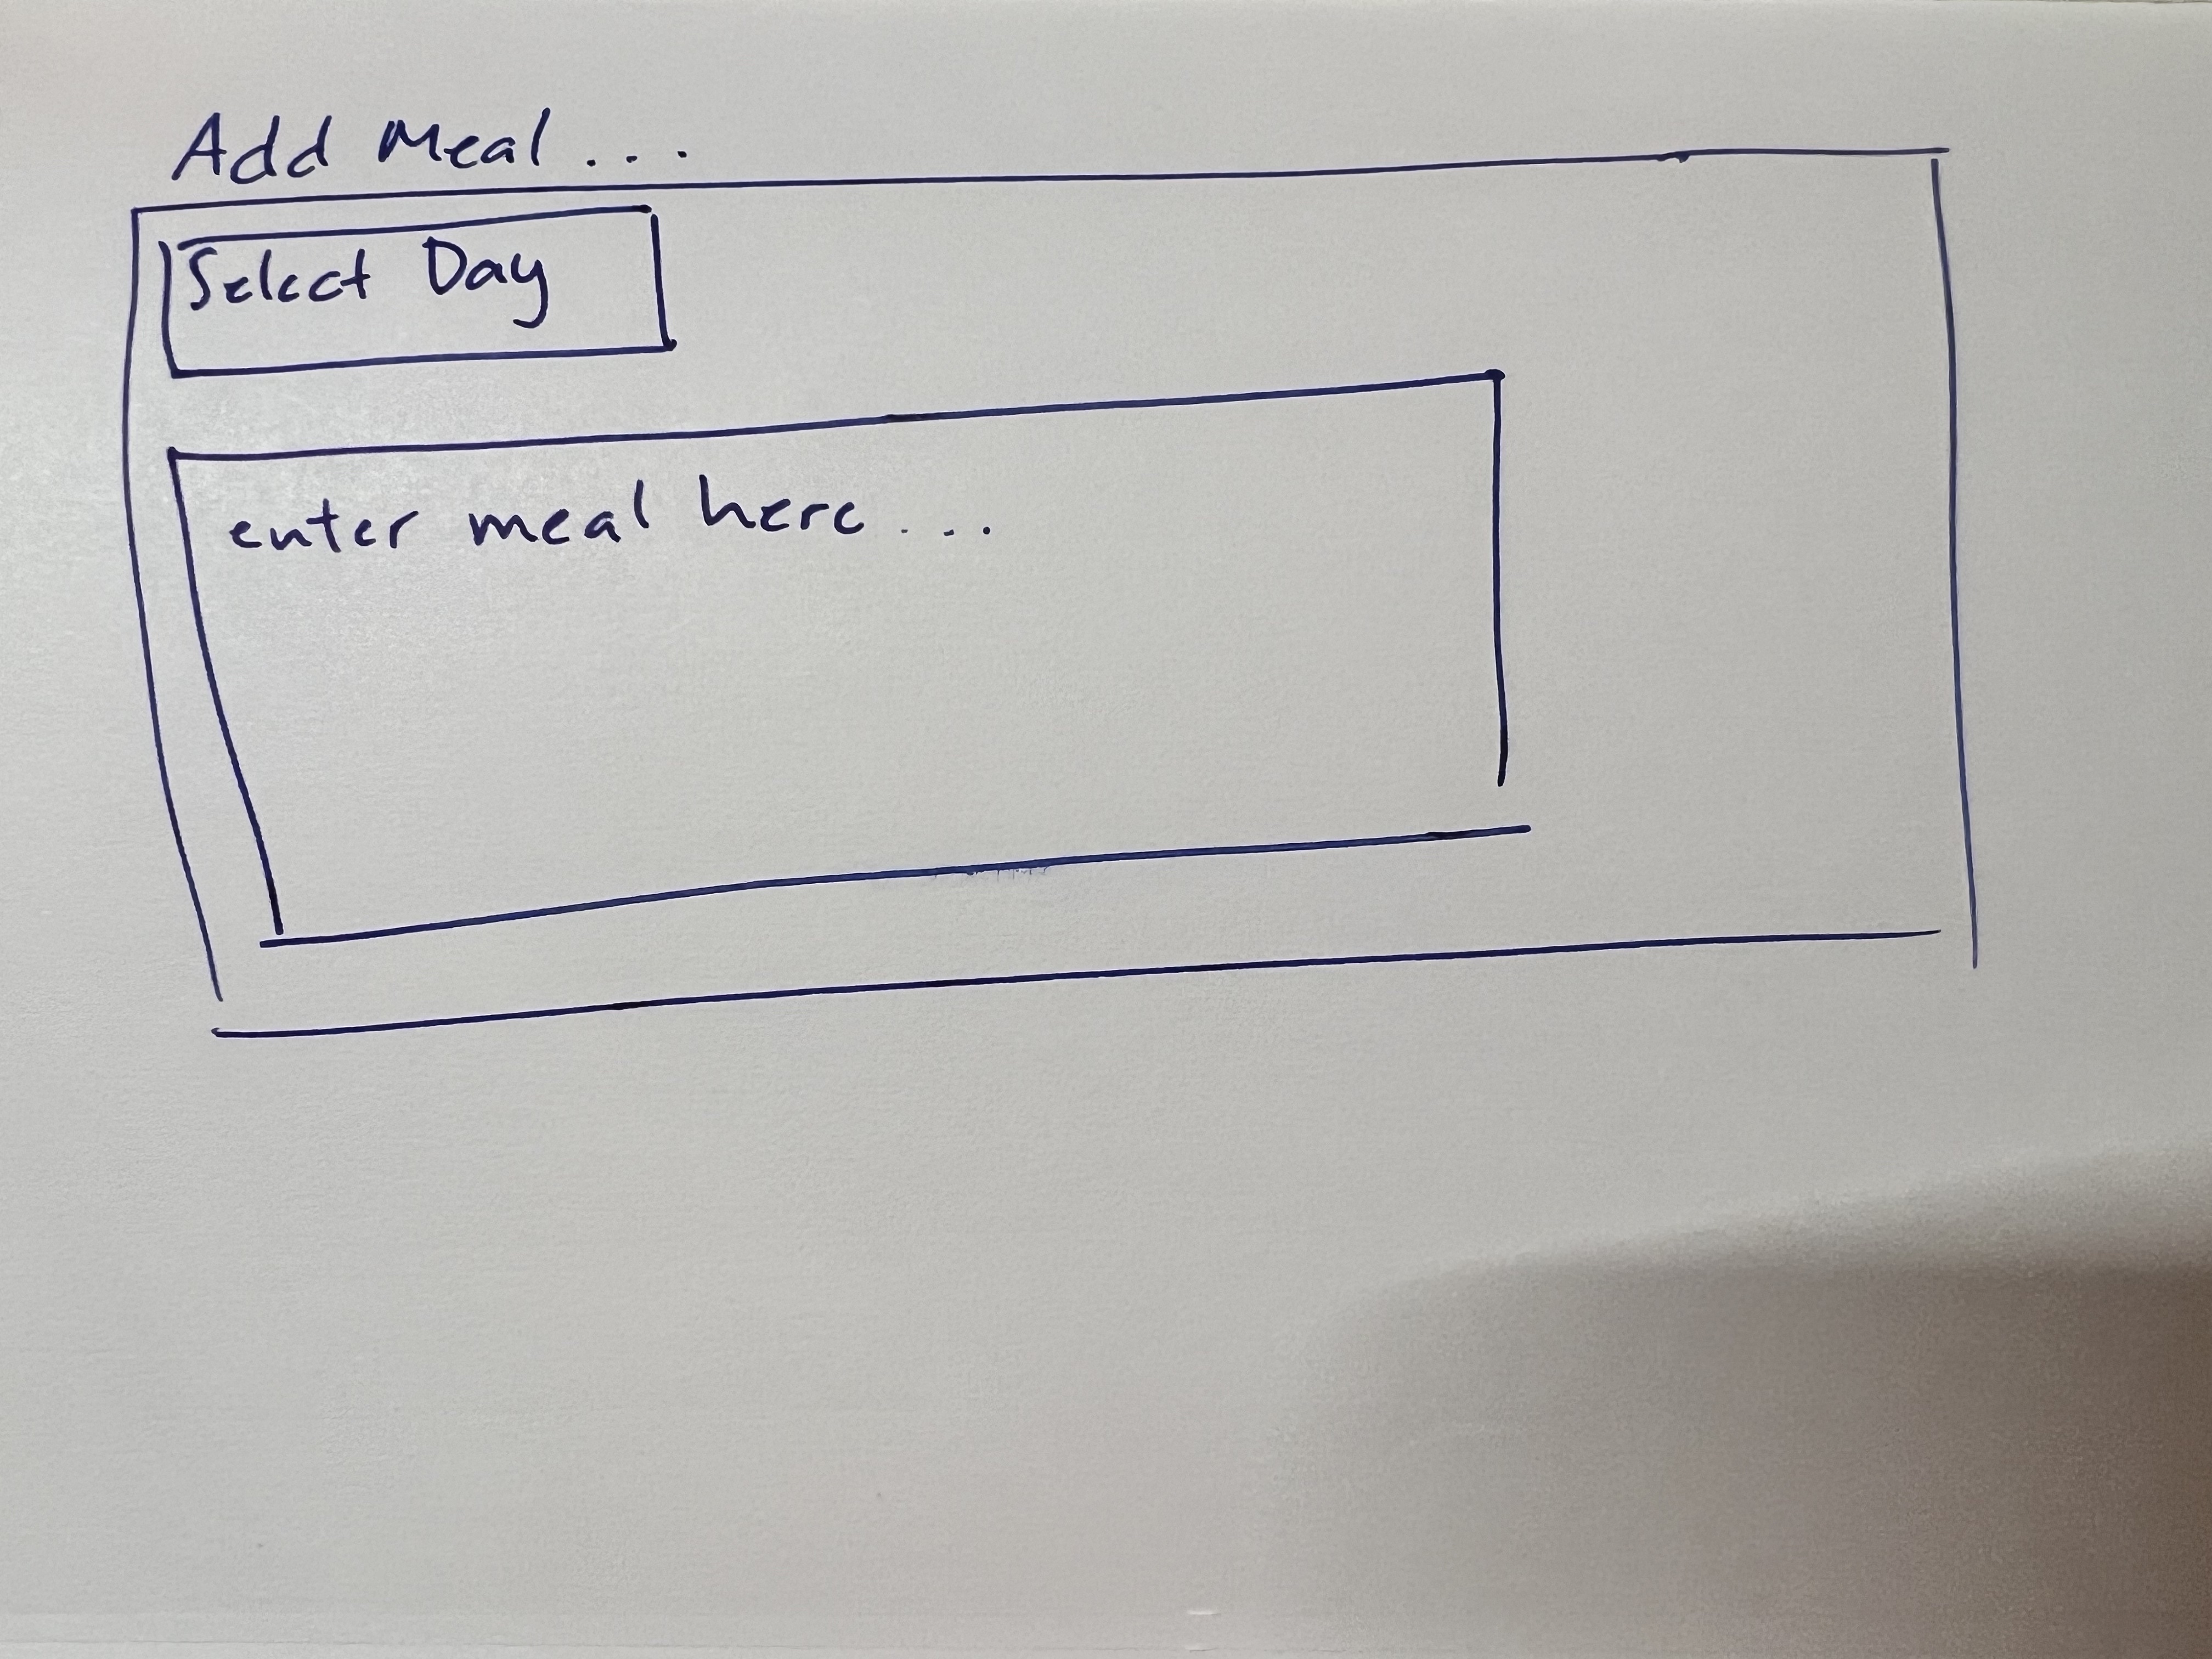 Add Meal...
Select Day
enter meal here...